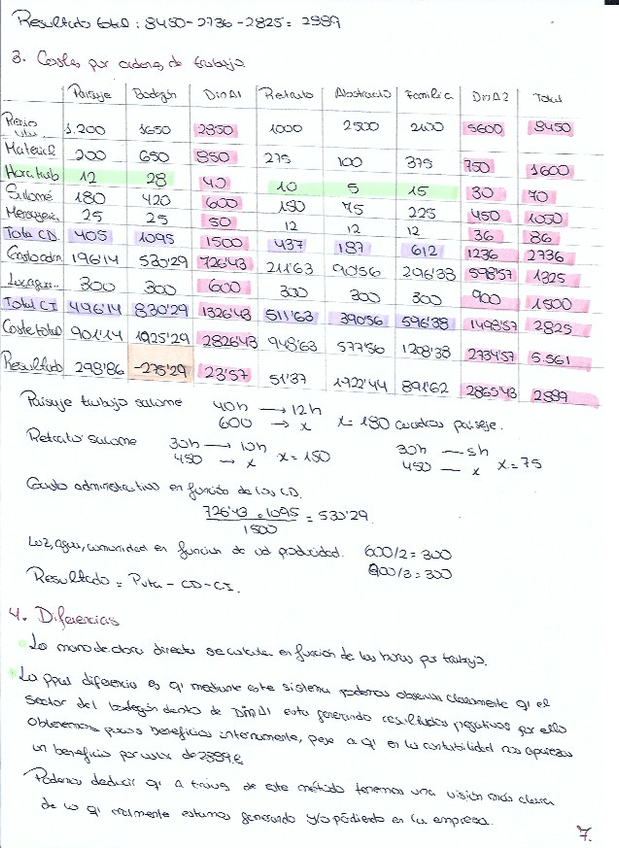 Resultado total: 8450-2736-2825= 2889
3. Costes por ordenes de trabajo
Paisaje Bodegón DinA1 Retrato Abstracto Familia DinA2 Total
Precio 1.200 1650 2850 1000 2500 2100 5600 8450
Material 200 650 850 275 100 375 750 1600
Hora trab 12 28 40 10 5 15 30 70
Salomé 180 420 600 150 75 225 450 1050
Mensajería 25 25 50 12 12 12 36 86
Total CD 405 1095 1500 437 187 612 1236 2736
Costo adm. 196'14 530'29 726'43 211'63 90'56 296'38 598'57 1325
Luz, agua... 300 300 600 300 300 300 900 1500
Total CI 496'14 830'29 1326'43 511'63 390'56 596'38 1498'57 2825
Coste total 901'14 1925'29 2826'43 948'63 577'56 1208'38 2734'57 5.561
Resultado 298'86 -275'29 23'57 51'37 1922'44 891'62 2865'43 2889
Paisaje trabajo salome 40h → 12h
600 → x x= 180 cuadros paisaje.
Retrato salome 30h → 10h 30h — 5h
450 → x x=150 450 — x x=75
Gasto administrativo en función de los CD.
726'43 . 1095 / 1500 = 530'29
Luz, agua, comunidad en funcion de ud producidad. 600/2=300
900/3=300
Resultado = Pvta - CD - CI.
4. Diferencias
La mano de obra directa se calcula en función de las horas por trabajo.
La ppal diferencia es q' mediante este sistema podemos observar claramente q' el
sector del bodegón dento de DinA1 esta generando resultados negativos por ello
obtenemos pocos beneficios internamente, pese a q' en la contabilidad nos aparezca
un beneficio por valor de 2889€
Podemos deducir q' a traves de este método tenemos una visión más clara
de lo q' realmente estamos generando y/o pediendo en la empresa.
7.